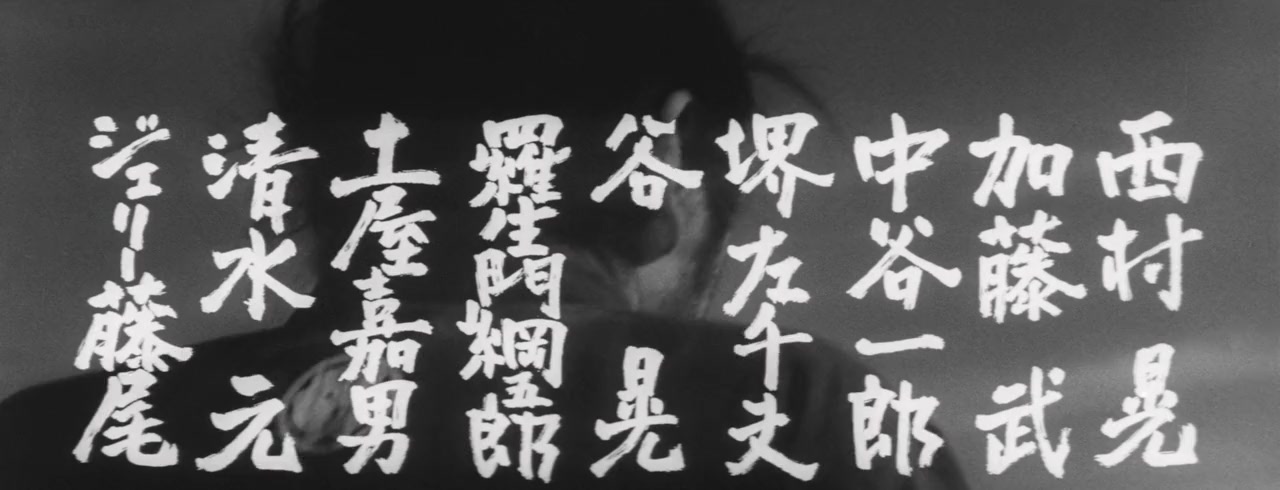 西村晃
加藤武
中谷一郎
堺左千夫
谷晃
羅生門綱五郎
土屋嘉男
清水元
ジェリー藤尾